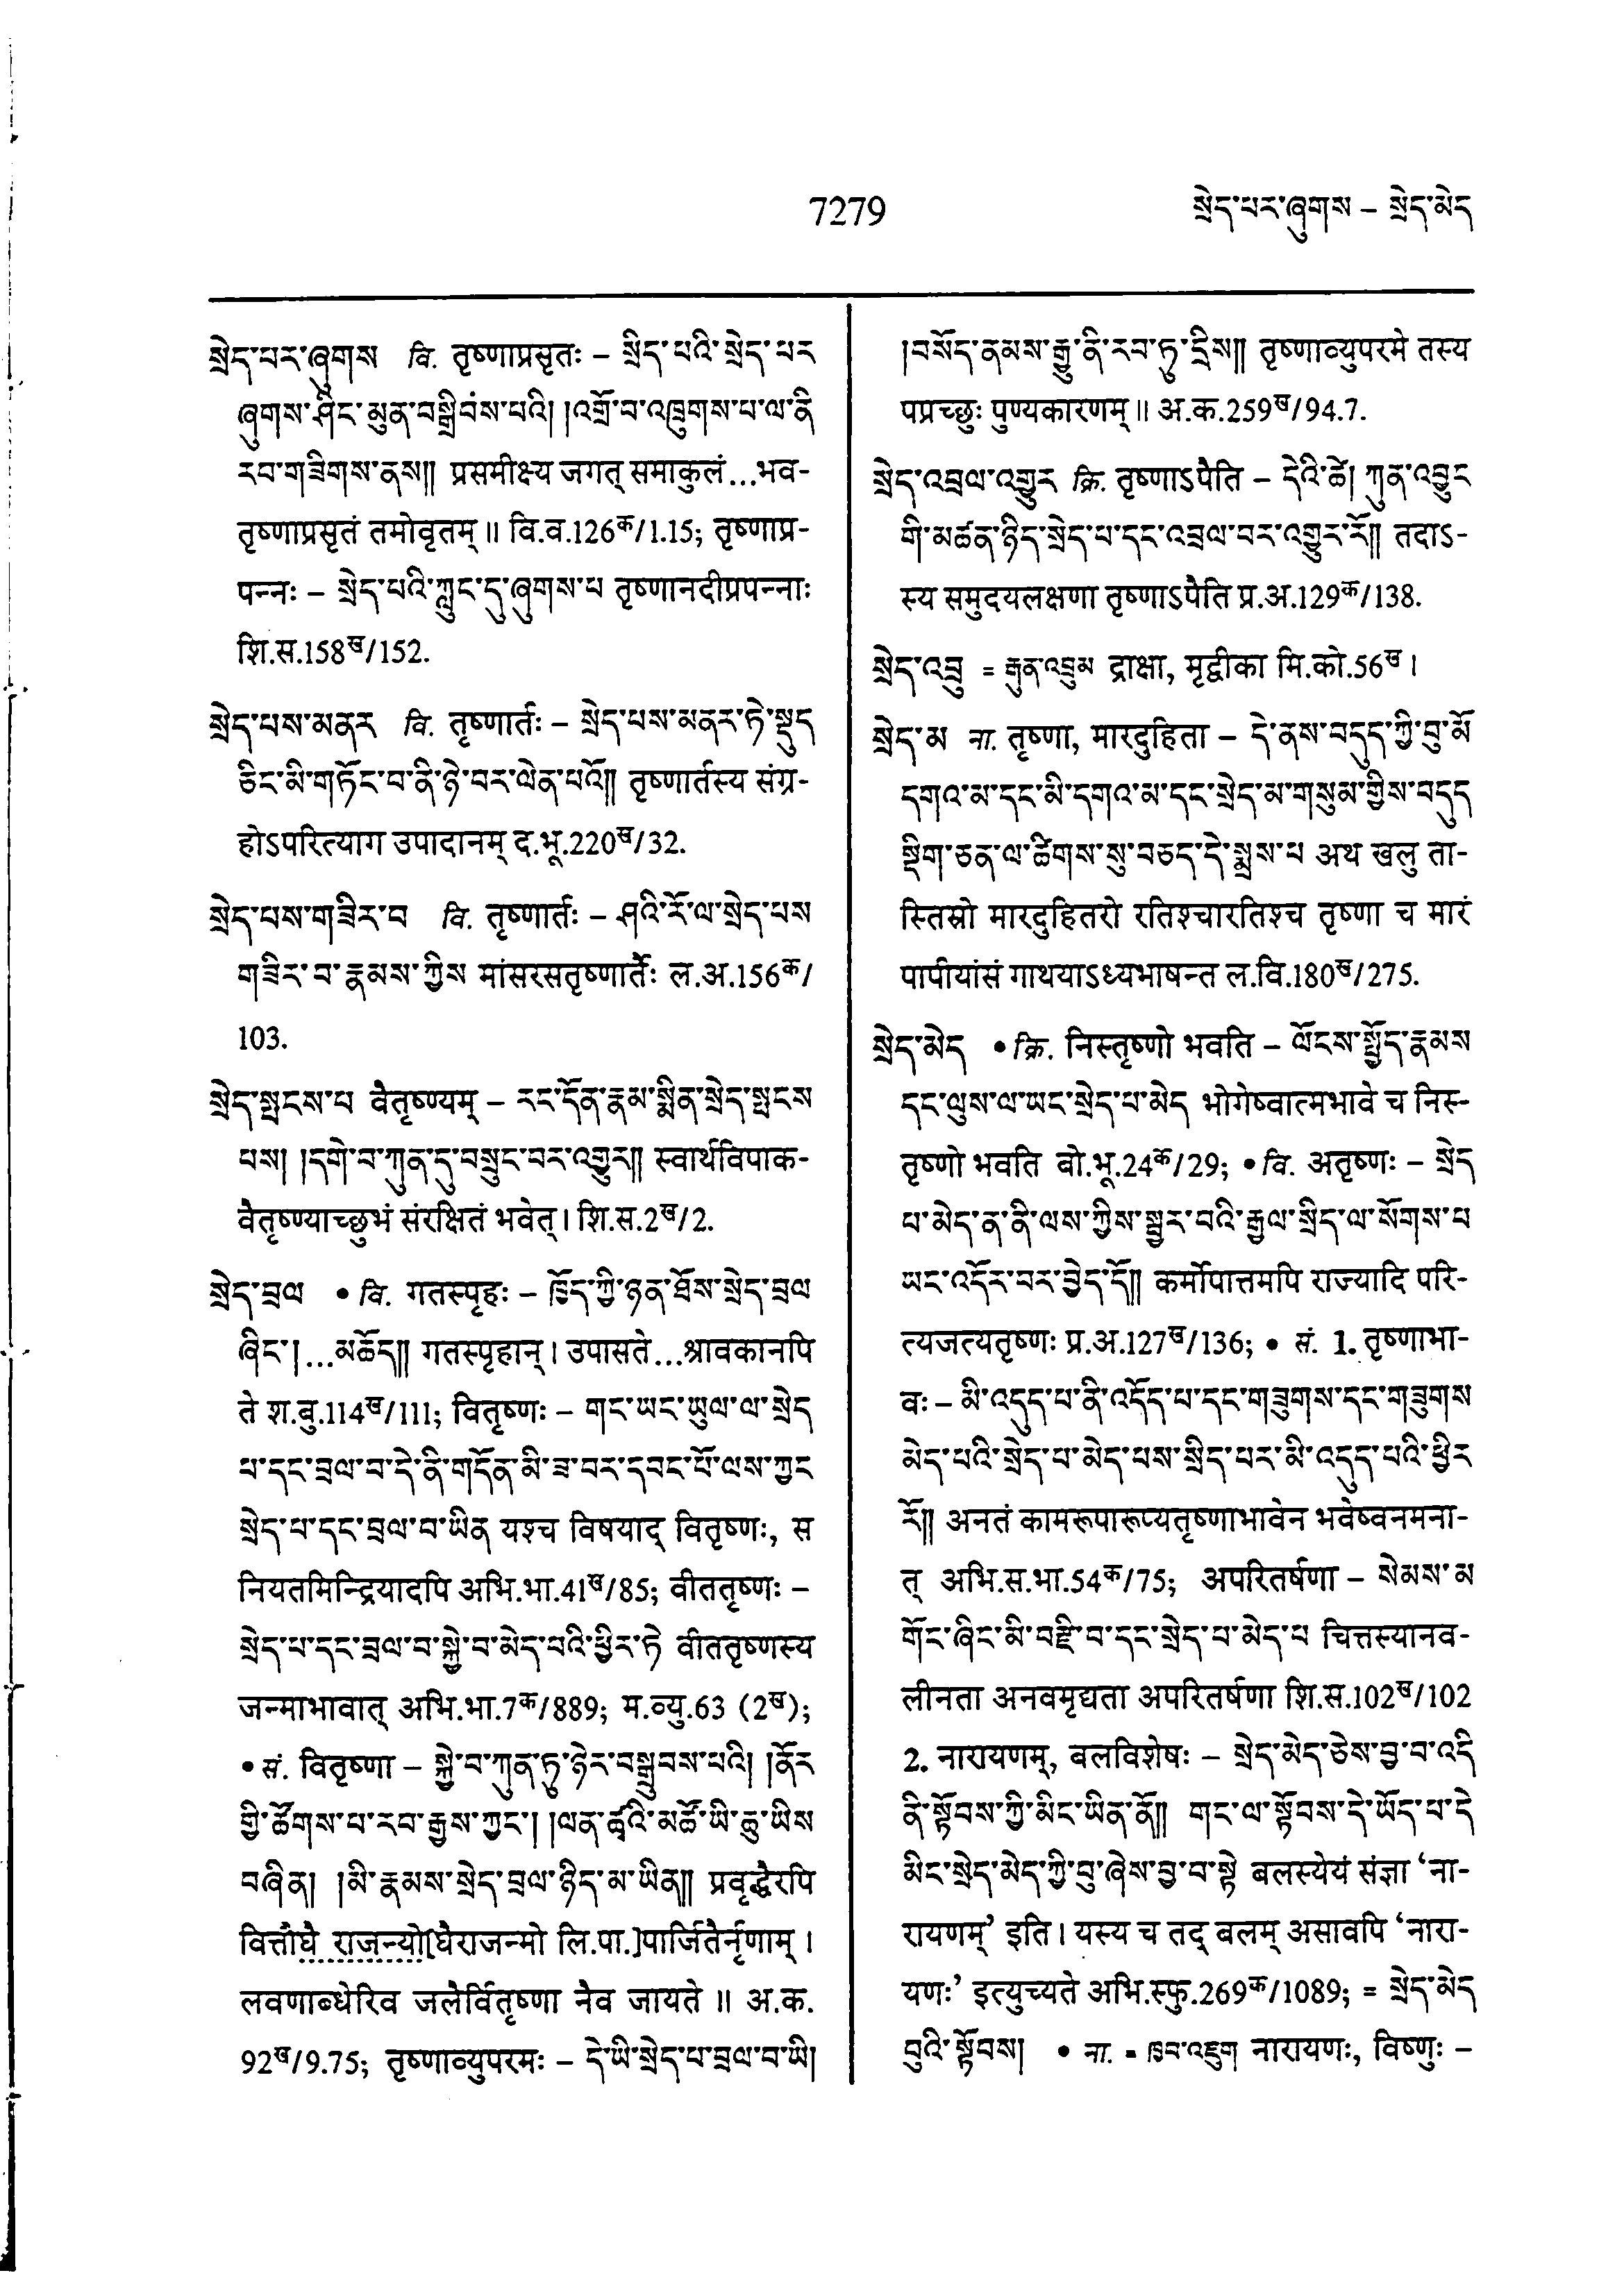 7279 སྲེད་པར་ཞུགས – སྲེད་མེད
སྲེད་པར་ཞུགས वि. तृष्णाप्रसृतः – སྲིད་པའི་སྲེད་པར
ཞུགས་ཤིང་མུན་བསྒྲིབས་པའི། །འགྲོ་བ་འཁྲུགས་པ་ལ་ནི
རབ་གཟིགས་ནས།། प्रसमीक्ष्य जगत् समाकुलं...भव-
तृष्णाप्रसृतं तमोवृतम्॥ वि.व.126क/1.15; तृष्णाप्र-
पन्नः – སྲེད་པའི་ཀླུང་དུ་ཞུགས་པ तृष्णानदीप्रपन्नाः
शि.स.158ख/152.
སྲེད་པས་མནར वि. तृष्णार्तः – སྲེད་པས་མནར་ཏེ་སྡུད
ཅིང་མི་གཏོང་བ་ནི་ཉེ་བར་ལེན་པའོ།། तृष्णार्तस्य संग्र-
होऽपरित्याग उपादानम् द.भू.220ख/32.
སྲེད་པས་གཟིར་བ वि. तृष्णार्तः – ཤའི་རོ་ལ་སྲེད་པས
གཟིར་བ་རྣམས་ཀྱིས मांसरसतृष्णार्तैः ल.अ.156क/
103.
སྲེད་སྤངས་པ वैतृष्ण्यम् – རང་དོན་རྣམ་སྨིན་སྲེད་སྤངས
པས། །དགེ་བ་ཀུན་དུ་བསྲུང་བར་འགྱུར།། स्वार्थविपाक-
वैतृष्ण्याच्छुभं संरक्षितं भवेत्। शि.स.2ख/2.
སྲེད་བྲལ • वि. गतस्पृहः – ཁྱོད་ཀྱི་ཉན་ཐོས་སྲེད་བྲལ
ཞིང་།...མཆོད།། गतस्पृहान्। उपासते...श्रावकानपि
ते श.बु.114ख/111; वितृष्णः – གང་ཡང་ཡུལ་ལ་སྲེད
པ་དང་བྲལ་བ་དེ་ནི་གདོན་མི་ཟ་བར་དབང་པོ་ལས་ཀྱང
སྲེད་པ་དང་བྲལ་བ་ཡིན यश्च विषयाद् वितृष्णः, स
नियतमिन्द्रियादपि अभि.भा.41ख/85; वीततृष्णः –
སྲེད་པ་དང་བྲལ་བ་སྐྱེ་བ་མེད་པའི་ཕྱིར་ཏེ वीततृष्णस्य
जन्माभावात् अभि.भा.7क/889; म.व्यु.63 (2ख);
• सं. वितृष्णा – སྐྱེ་བ་ཀུན་ཏུ་ཉེར་བསྒྲུབས་པའི། །ནོར
གྱི་ཚོགས་པ་རབ་རྒྱས་ཀྱང་། །ལན་ཚྭའི་མཚོ་ཡི་ཆུ་ཡིས
བཞིན། །མི་རྣམས་སྲེད་བྲལ་ཉིད་མ་ཡིན།། प्रवृद्धैरपि
वित्तौघै राजन्यो[घैराजन्मो लि.पा.]पार्जितैर्नृणाम्।
लवणाब्धेरिव जलैर्वितृष्णा नैव जायते॥ अ.क.
92ख/9.75; तृष्णाव्युपरमः – དེ་ཡི་སྲེད་པ་བྲལ་བ་ཡི།
།བསོད་ནམས་རྒྱུ་ནི་རབ་ཏུ་དྲིས།། तृष्णाव्युपरमे तस्य
पप्रच्छुः पुण्यकारणम्॥ अ.क.259ख/94.7.
སྲེད་འབྲལ་འགྱུར क्रि. तृष्णाऽपैति – དེའི་ཚེ། ཀུན་འབྱུང
གི་མཚན་ཉིད་སྲེད་པ་དང་འབྲལ་བར་འགྱུར་རོ།། तदाऽ-
स्य समुदयलक्षणा तृष्णाऽपैति प्र.अ.129क/138.
སྲེད་འབྲུ = རྒུན་འབྲུམ द्राक्षा, मृद्वीका मि.को.56ख।
སྲེད་མ ना. तृष्णा, मारदुहिता – དེ་ནས་བདུད་ཀྱི་བུ་མོ
དགའ་མ་དང་མི་དགའ་མ་དང་སྲེད་མ་གསུམ་གྱིས་བདུད
སྡིག་ཅན་ལ་ཚིགས་སུ་བཅད་དེ་སྨྲས་པ अथ खलु ता-
स्तिस्रो मारदुहितरो रतिश्चारतिश्च तृष्णा च मारं
पापीयांसं गाथयाऽध्यभाषन्त ल.वि.180ख/275.
སྲེད་མེད • क्रि. निस्तृष्णो भवति – ལོངས་སྤྱོད་རྣམས
དང་ལུས་ལ་ཡང་སྲེད་པ་མེད भोगेष्वात्मभावे च निस्-
तृष्णो भवति बो.भू.24क/29; • वि. अतृष्णः – སྲེད
པ་མེད་ན་ནི་ལས་ཀྱིས་སྦྱར་བའི་རྒྱལ་སྲིད་ལ་སོགས་པ
ཡང་འདོར་བར་བྱེད་དོ།། कर्मोपात्तमपि राज्यादि परि-
त्यजत्यतृष्णः प्र.अ.127ख/136; • सं. 1. तृष्णाभा-
वः – མི་འདུད་པ་ནི་འདོད་པ་དང་གཟུགས་དང་གཟུགས
མེད་པའི་སྲེད་པ་མེད་པས་སྲིད་པར་མི་འདུད་པའི་ཕྱིར
རོ།། अनतं कामरूपारूप्यतृष्णाभावेन भवेष्वनमना-
त् अभि.स.भा.54क/75; अपरितर्षणा – སེམས་མ
གོང་ཞིང་མི་བརྫི་བ་དང་སྲེད་པ་མེད་པ चित्तस्यानव-
लीनता अनवमृद्यता अपरितर्षणा शि.स.102ख/102
2. नारायणम्, बलविशेषः – སྲེད་མེད་ཅེས་བྱ་བ་འདི
ནི་སྟོབས་ཀྱི་མིང་ཡིན་ནོ།། གང་ལ་སྟོབས་དེ་ཡོད་པ་དེ
མིང་སྲེད་མེད་ཀྱི་བུ་ཞེས་བྱ་བ་སྟེ बलस्येयं संज्ञा ‘ना-
रायणम्’ इति। यस्य च तद् बलम् असावपि ‘नारा-
यणः’ इत्युच्यते अभि.स्फु.269क/1089; = སྲེད་མེད
བུའི་སྟོབས། • ना. = ཁབ་འཇུག नारायणः, विष्णुः –